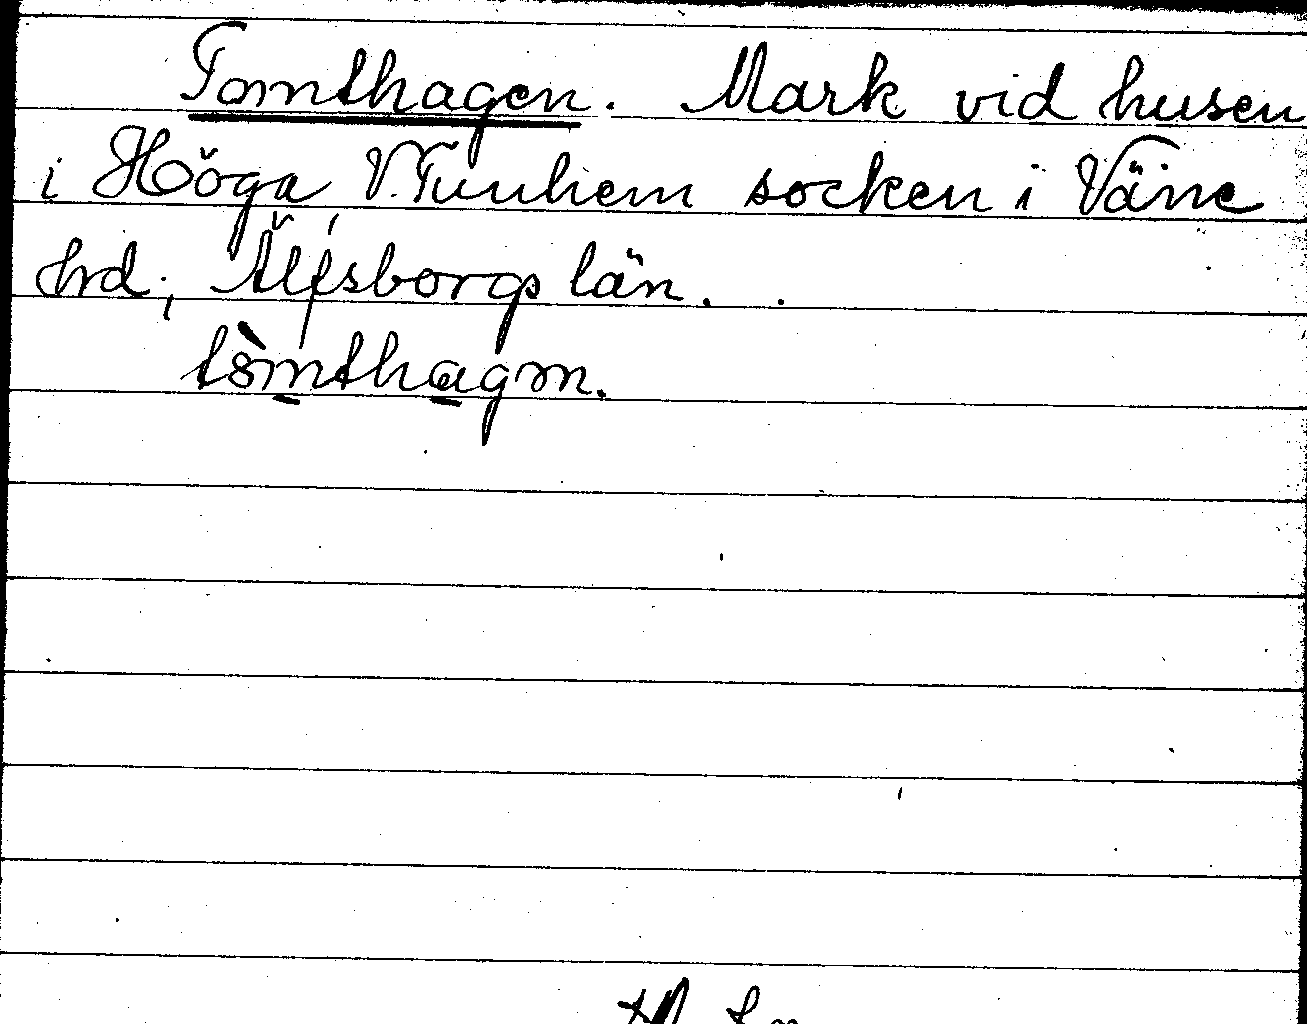 Tomthagen. Mark vid husen
i Höga, V. Tunhem socken i Väne
hrd, Älfsborgs län.